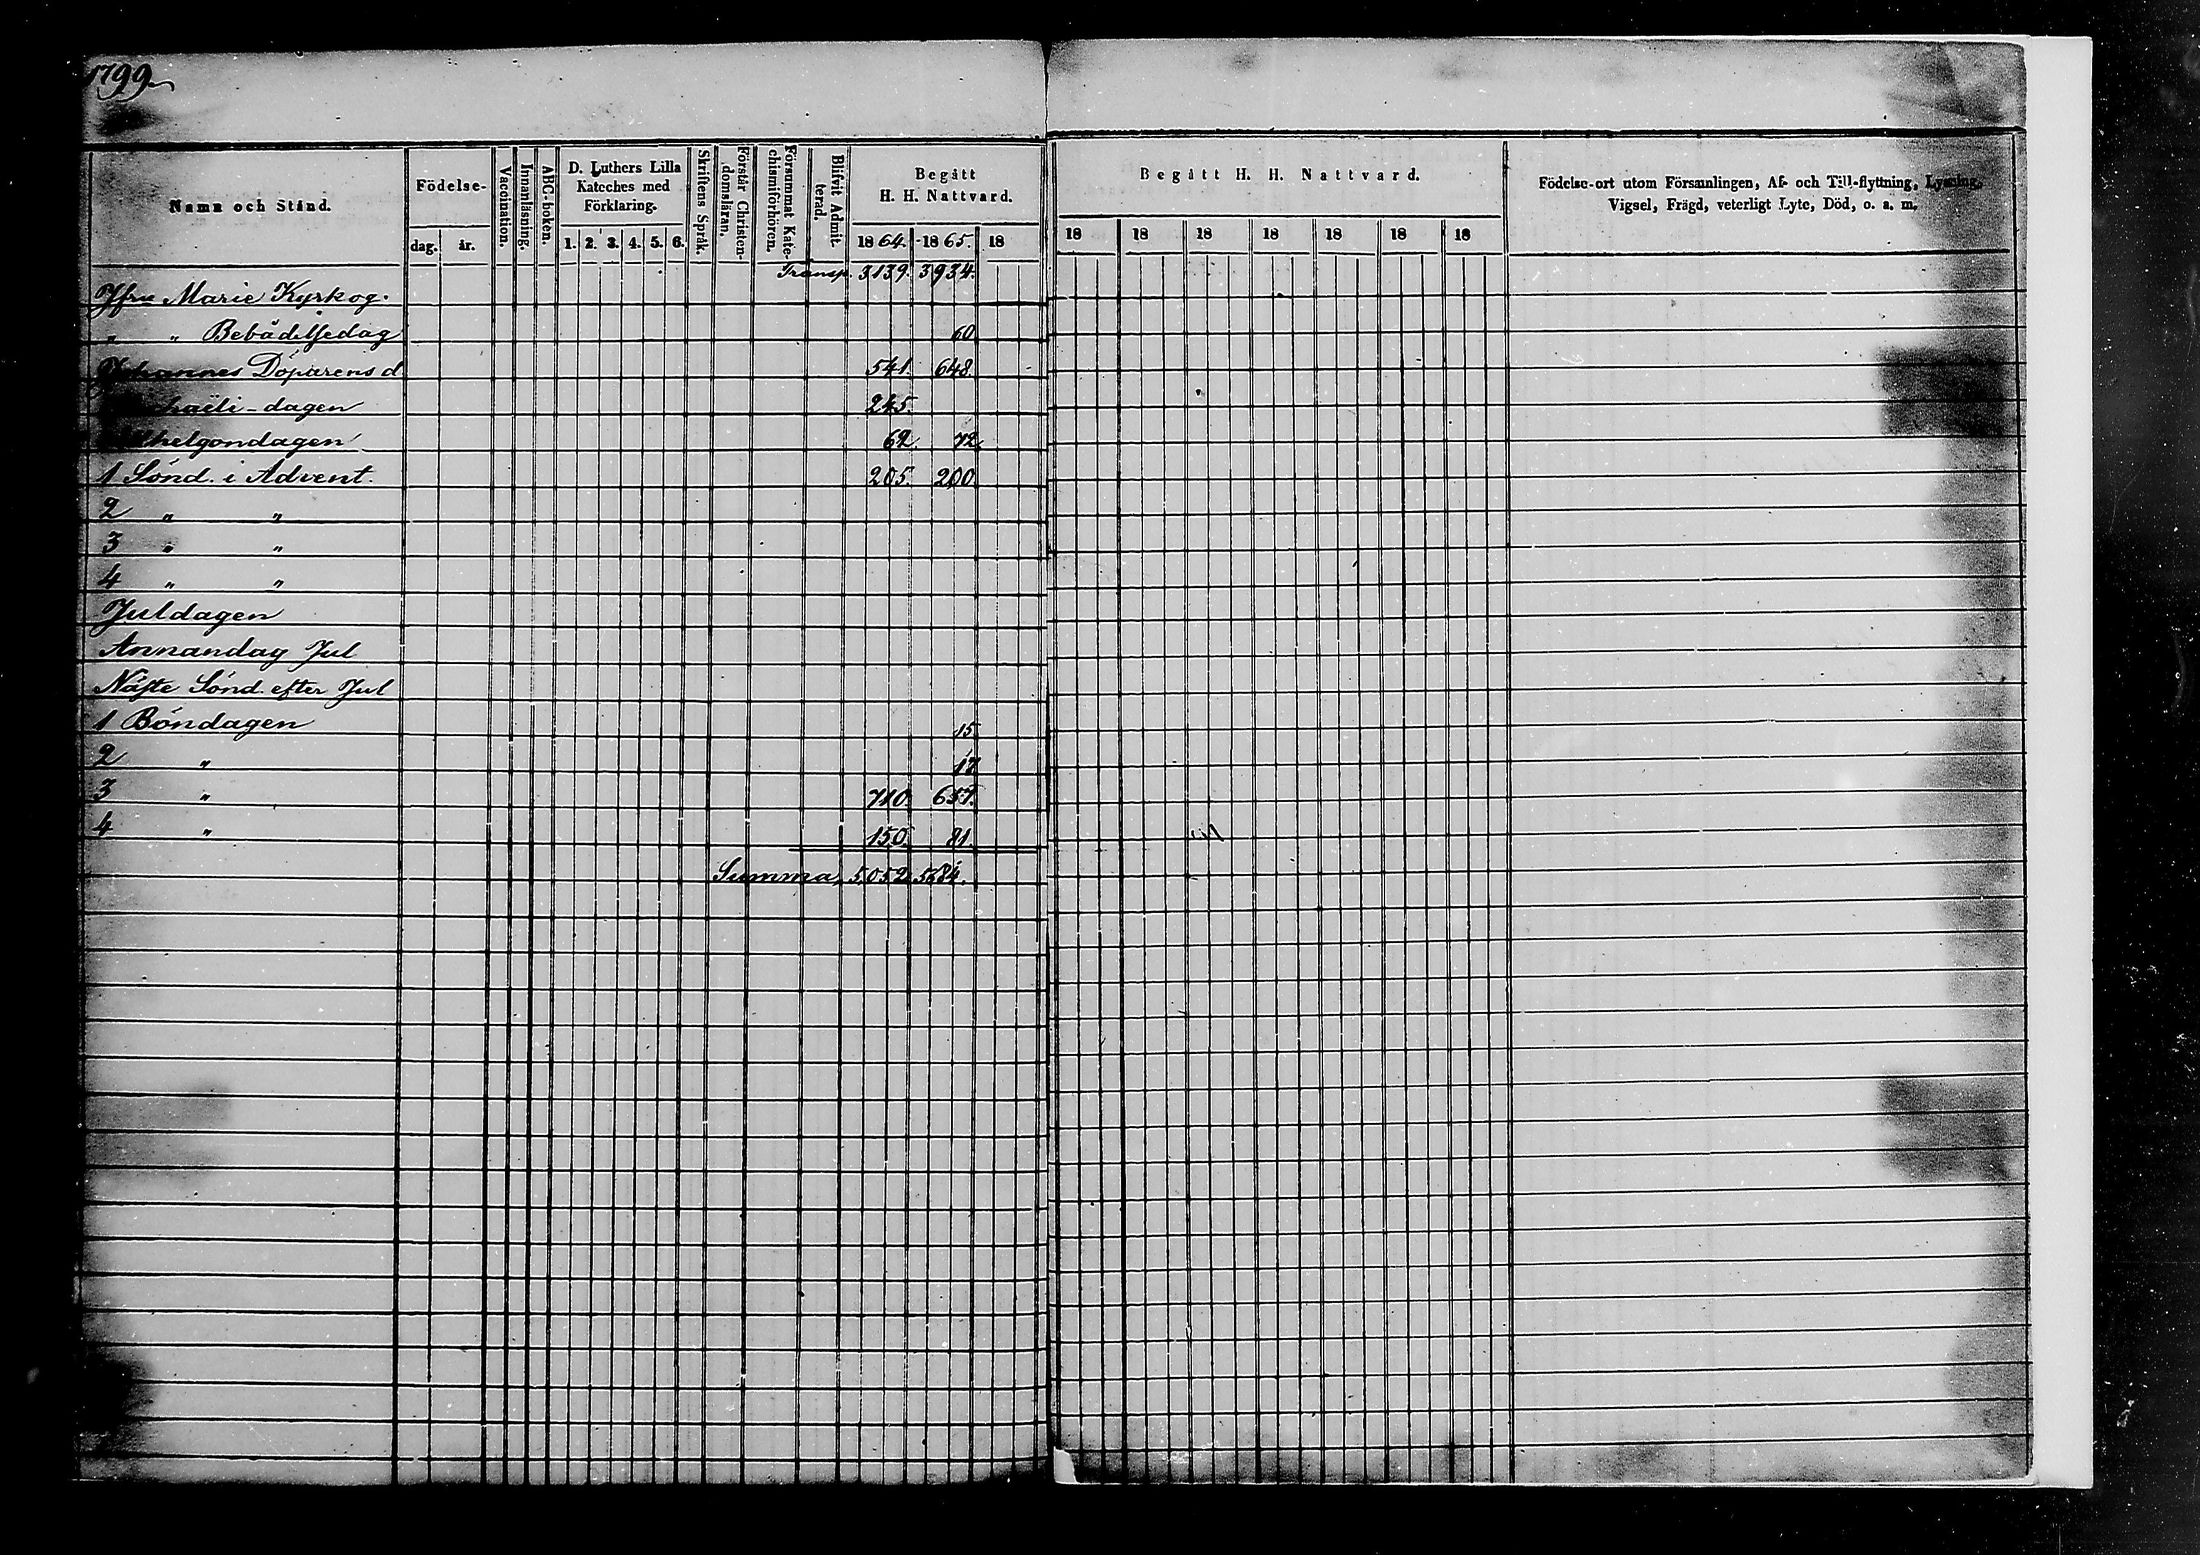 1799
Namn och Stånd.
Födelse-
dag. år.
Vaccination.
Innanläsning.
ABC-boken.
D. Luthers Lilla
Kateches med
Förklaring.
1. 2. 3. 4. 5. 6.
Skriftens Språk.
Förstår Christen-
domsläran.
Försummat Kate-
chismiförhören.
Blifvit Admit-
terad.
Begått
H. H. Nattvard.
1864. 1865. 18
Begått H. H. Nattvard.
18 18 18 18 18 18 18
Födelse-ort utom Församlingen, Af- och Till-flyttning, Lysning,
Vigsel, Frägd, veterligt Lyte, Död, o. s. m.
Transp. 3139. 3934.
Jfru Marie Kyrkog.
" " Bebådelsedag 60
Johannes Döparens d 541. 648.
Michaëli-dagen 245.
Allhelgondagen 62. 72
1 Sönd. i Advent. 205. 200
2 " "
3 " "
4 " "
Juldagen
Annandag Jul
Näste Sönd. efter Jul
1 Böndagen 15
2 " 17
3 " 710. 657.
4 " 150. 81.
Summa 5052 5684.